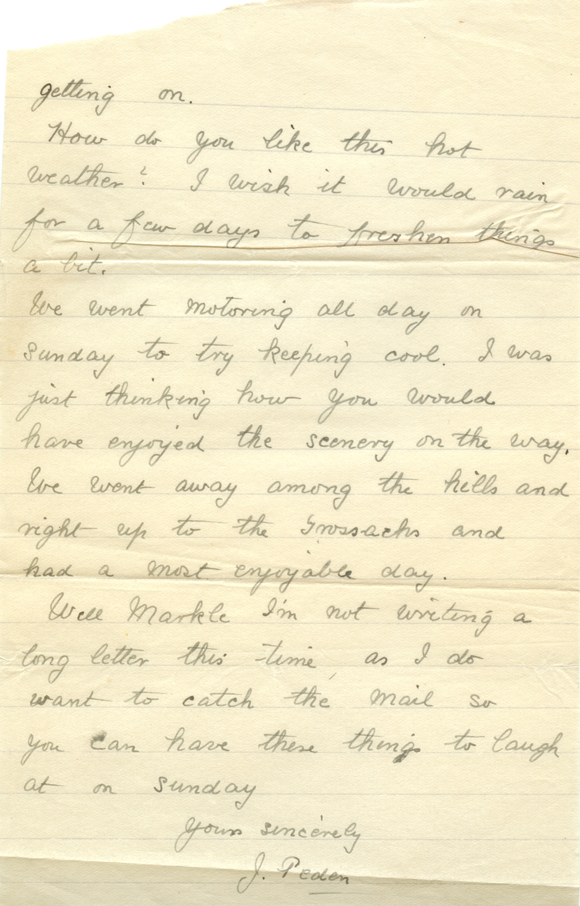 getting on.
How do you like this hot
weather? I wish it would rain
for a few days to freshen things
a bit.
We went motoring all day on
Sunday to try keeping cool. I was
just thinking how you would
have enjoyed the scenery on the way.
We went away among the hills and
right up to the Trossachs and
had a most enjoyable day.
Well Markle I'm not writing a
long letter this time, as I do
want to catch the mail so
you can have these things to laugh
at on Sunday
Yours sincerely
J. Peden